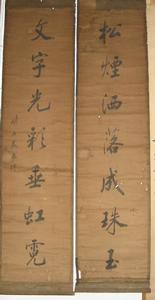 松煙洒落成珠玉
文字光彩垂虹霓